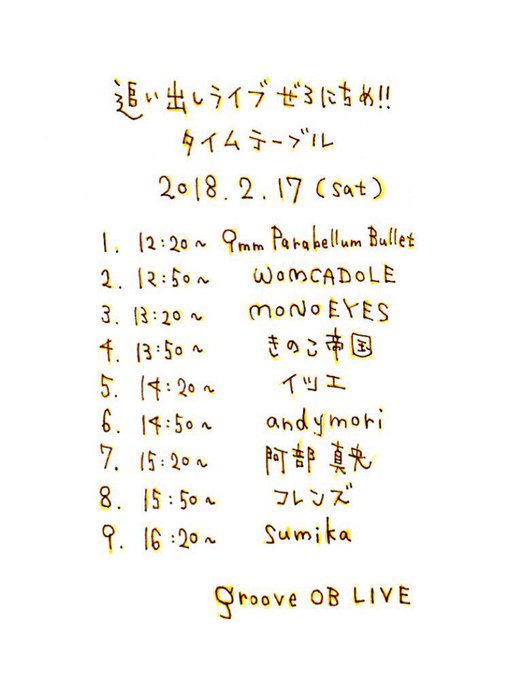 追い出しライブぜろにちめ!!
タイムテーブル
2018.2.17(sat)
1. 12:20~ 9mm Parabellum Bullet
2. 12:50~ WOMCADOLE
3. 13:20~ MONOEYES
4. 13:50~ きのこ帝国
5. 14:20~ イツエ
6. 14:50~ andymori
7. 15:20~ 阿部真央
8. 15:50~ コレンズ
9. 16:20~ sumika
groove OB LIVE